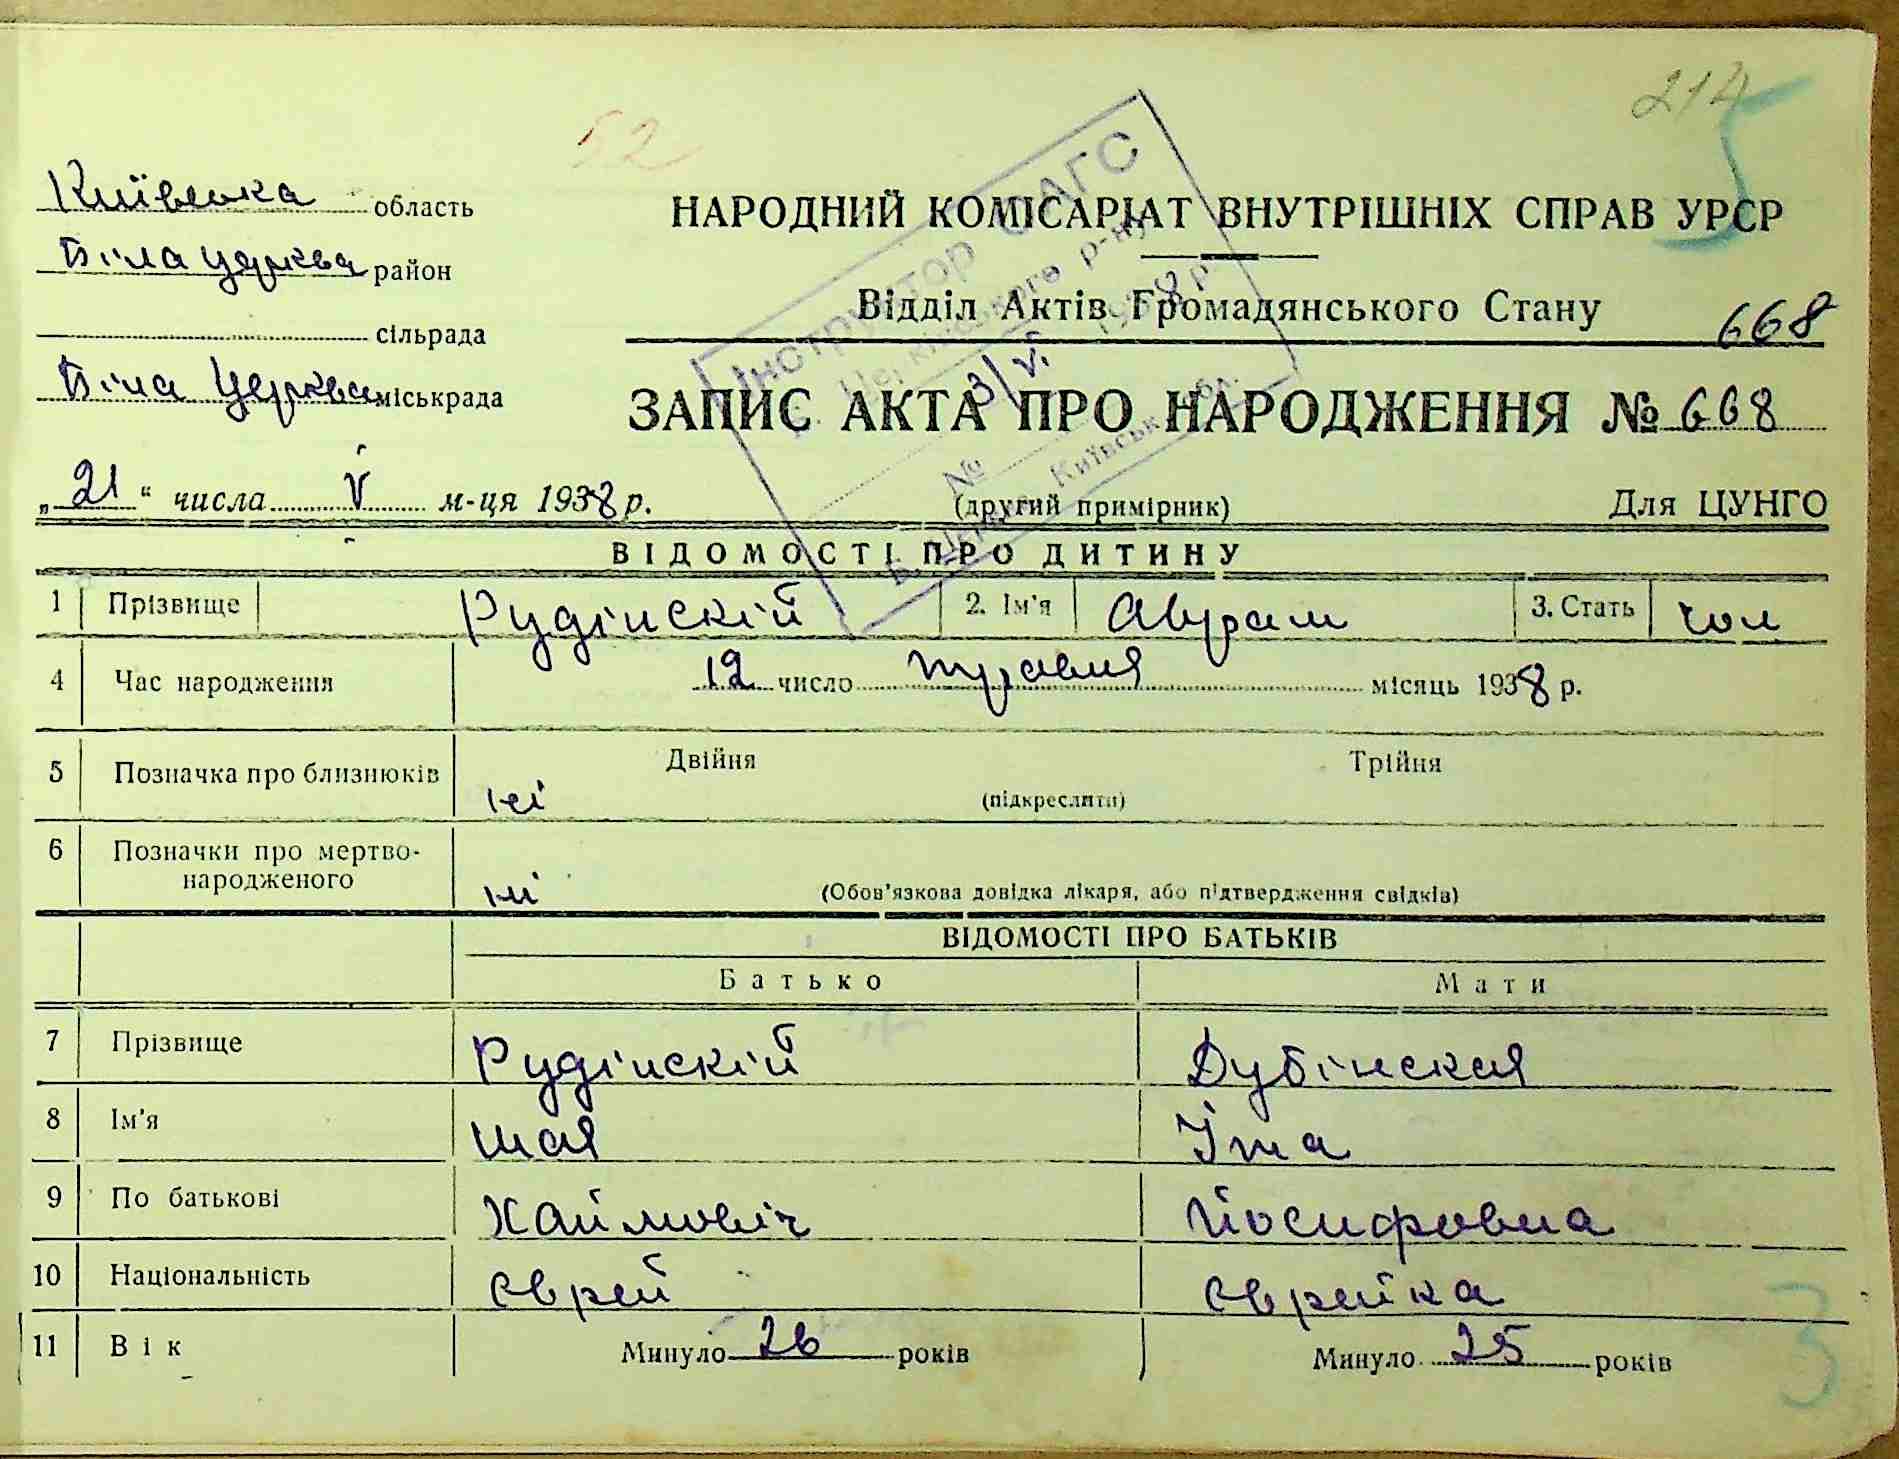 214
5
52
Київська область
Біла церква район
сільрада
Біла Церква міськрада
НАРОДНИЙ КОМІСАРІАТ ВНУТРІШНІХ СПРАВ УРСР
Відділ Актів Громадянського Стану 668
ЗАПИС АКТА ПРО НАРОДЖЕННЯ № 668
„21“ числа V м-ця 1938 р.
(другий примірник) Для ЦУНГО
Інструктор ЗАГС
Церківського р-ну
3/VI 1938 р.
№
Б. Церква Київськ. обл.
ВІДОМОСТІ ПРО ДИТИНУ
1 Прізвище Рудінскій 2. Ім'я Аврам 3. Стать чол
4 Час народження 12 число травня місяць 1938 р.
5 Позначка про близнюків ні Двійня Трійня
(підкреслити)
6 Позначки про мертво-
народженого ні (Обов'язкова довідка лікаря, або підтвердження свідків)
ВІДОМОСТІ ПРО БАТЬКІВ
Батько Мати
7 Прізвище Рудінскій Дубінская
8 Ім'я Шая Іта
9 По батькові Хаймовіч Йосифовна
10 Національність єврей єврейка
11 Вік Минуло 26 років Минуло 25 років
3